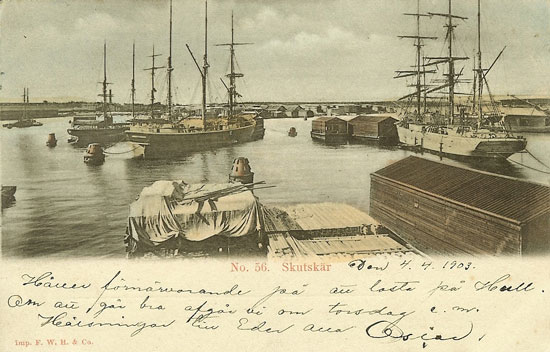 No. 56. Skutskär Den 4.4.1903.
Håller för närvarande på att lasta på Hull.
Om att går bra afgår vi om torsdag e.m.
Hälsningar till Eder alla Oscar
Imp. F. W. H. & Co.